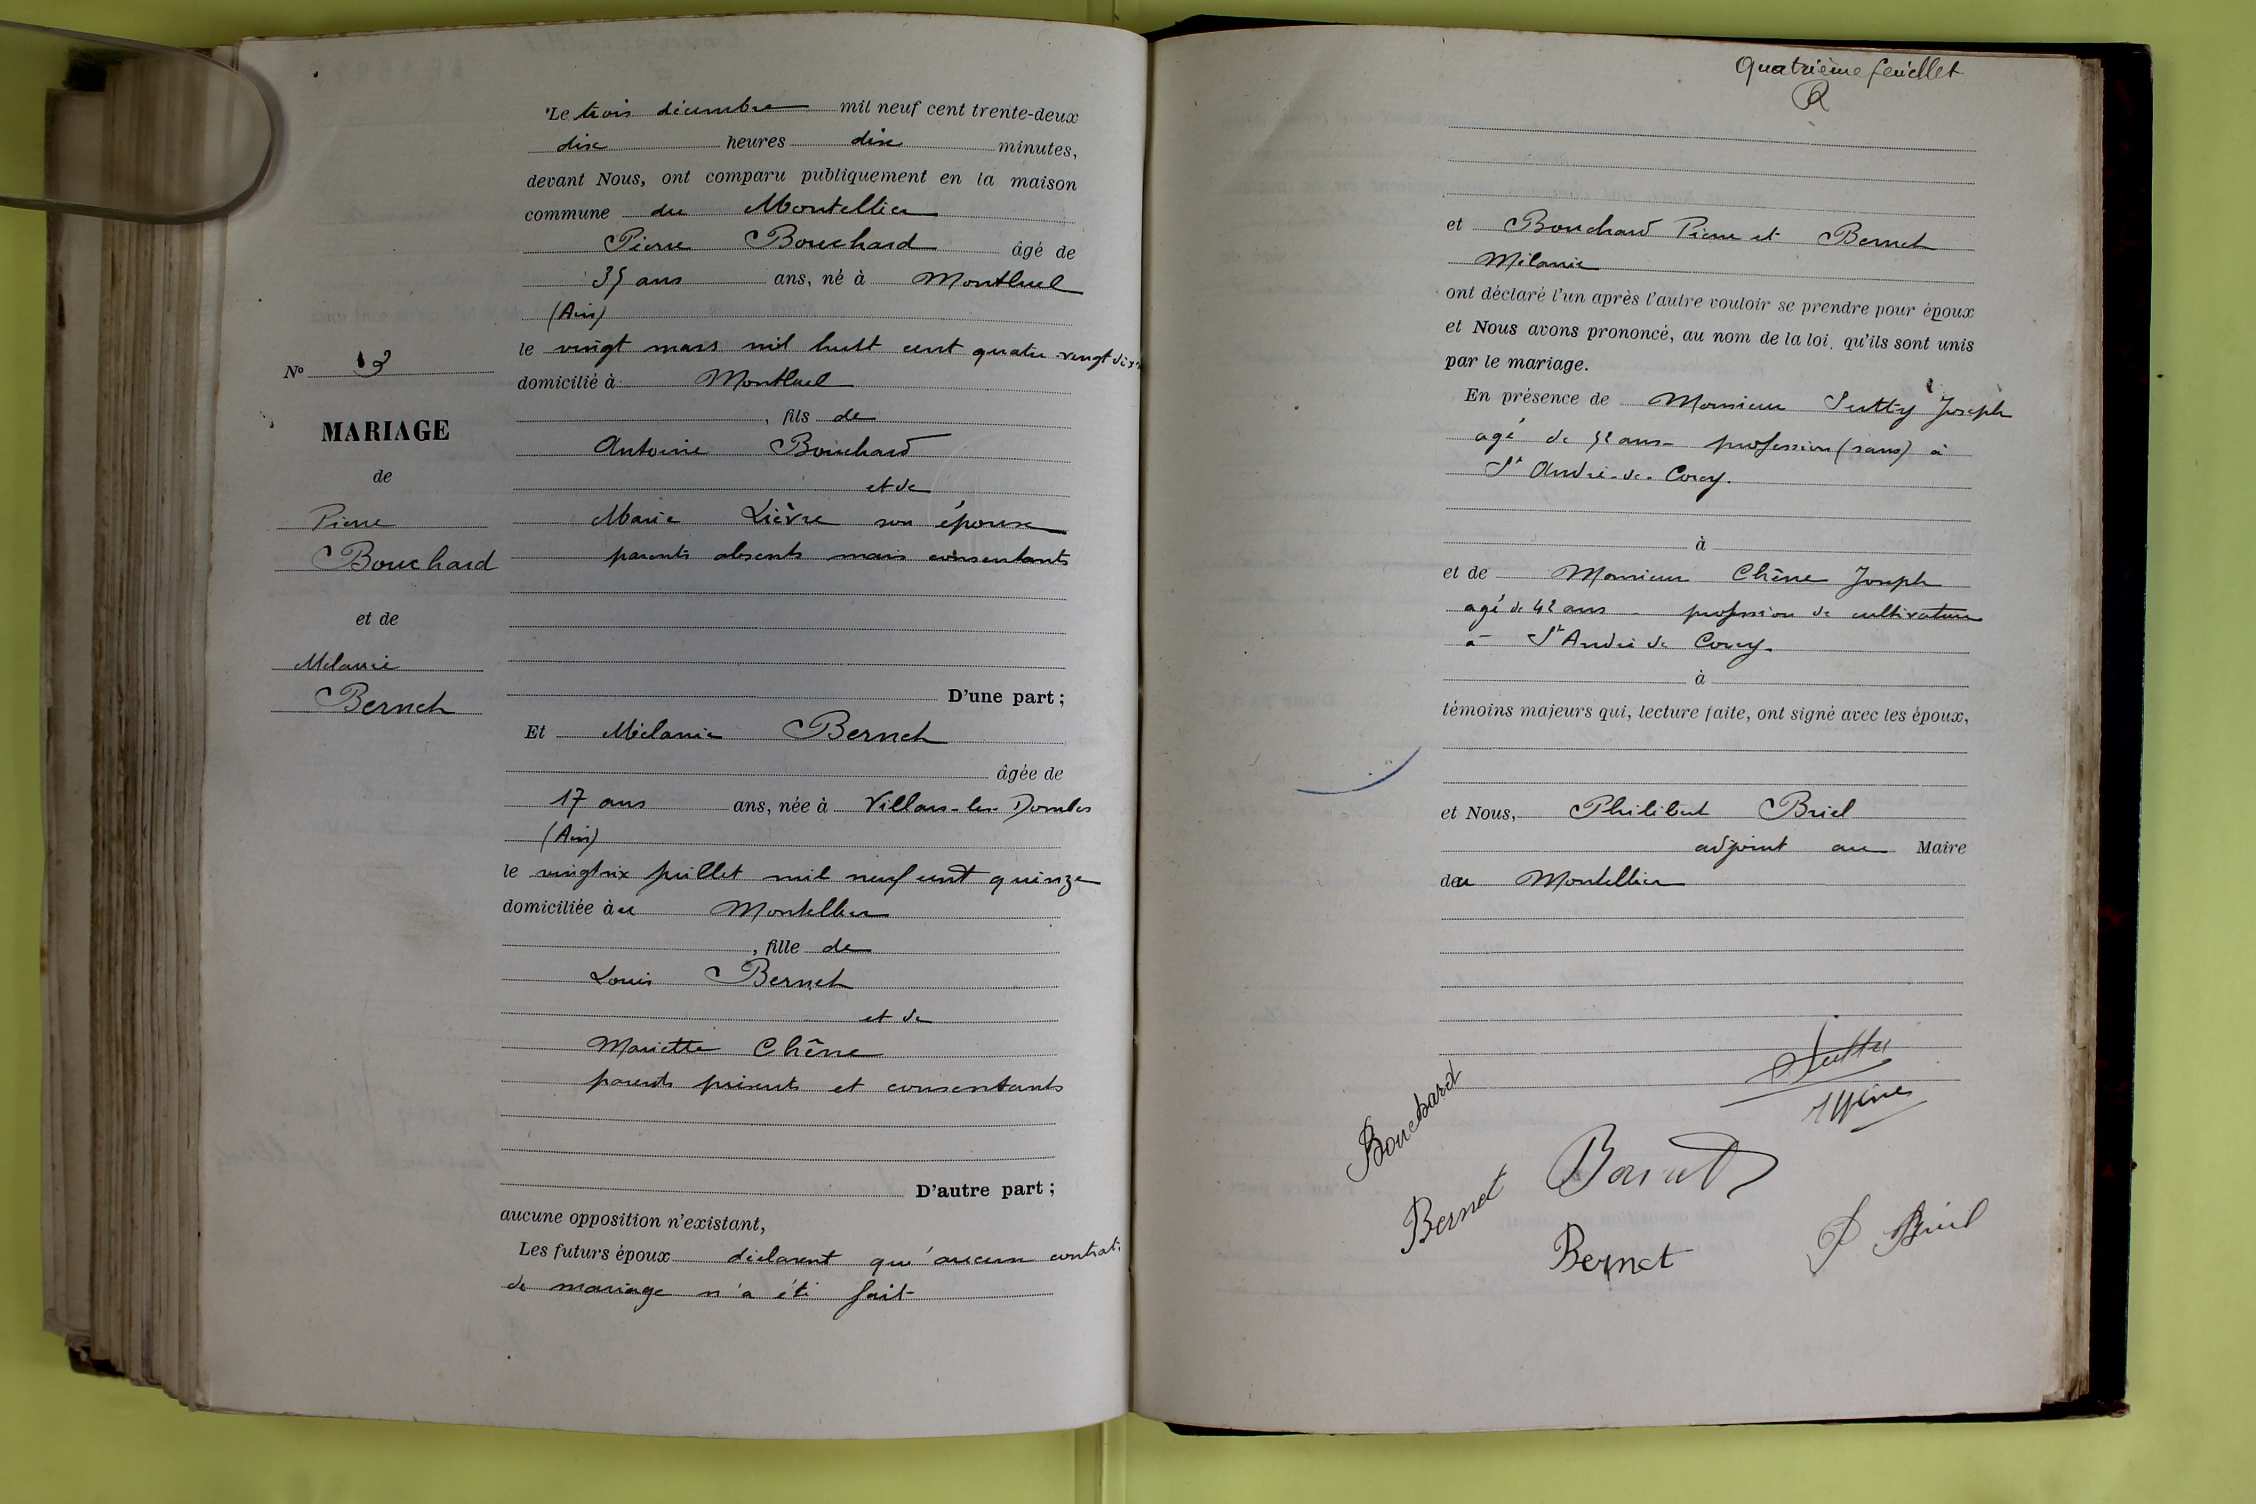 Le trois décembre mil neuf cent trente-deux
dix heures dix minutes,
devant Nous, ont comparu publiquement en la maison
commune du Montellier
Pierre Bouchard âgé de
35 ans ans, né à Montluel
(Ain)
le vingt mars mil huit cent quatre-vingt dix
domicilié à Montluel
, fils de
Antoine Bouchard
et de
Marie Lièvre son épouse
parents absents mais consentants
D'une part ;
Et Mélanie Bernet
âgée de
17 ans ans, née à Villars-les-Dombes
(Ain)
le vingt six juillet mil neuf cent quinze
domiciliée au Montellier
, fille de
Louis Bernet
et de
Mariette Chêne
parents présents et consentants
D'autre part ;
aucune opposition n'existant,
Les futurs époux déclarent qu'aucun contrat
de mariage n'a été fait
No
MARIAGE
de
Pierre
Bouchard
et de
Mélanie
Bernet
Quatrième feuillet
et Bouchard Pierre et Bernet
Mélanie
ont déclaré l'un après l'autre vouloir se prendre pour époux
et Nous avons prononcé, au nom de la loi, qu'ils sont unis
par le mariage.
En présence de Monsieur Joseph
agé de 52 ans - profession (sans) à
St André-de-Corcy.
à
et de Monsieur Chêne Joseph
agé de 42 ans - profession de cultivateur
à St André de Corcy.
à
témoins majeurs qui, lecture faite, ont signé avec les époux,
et Nous, Philibert Briel
adjoint au Maire
du Montellier
Bouchard
Bernet
Bernet
P Briel